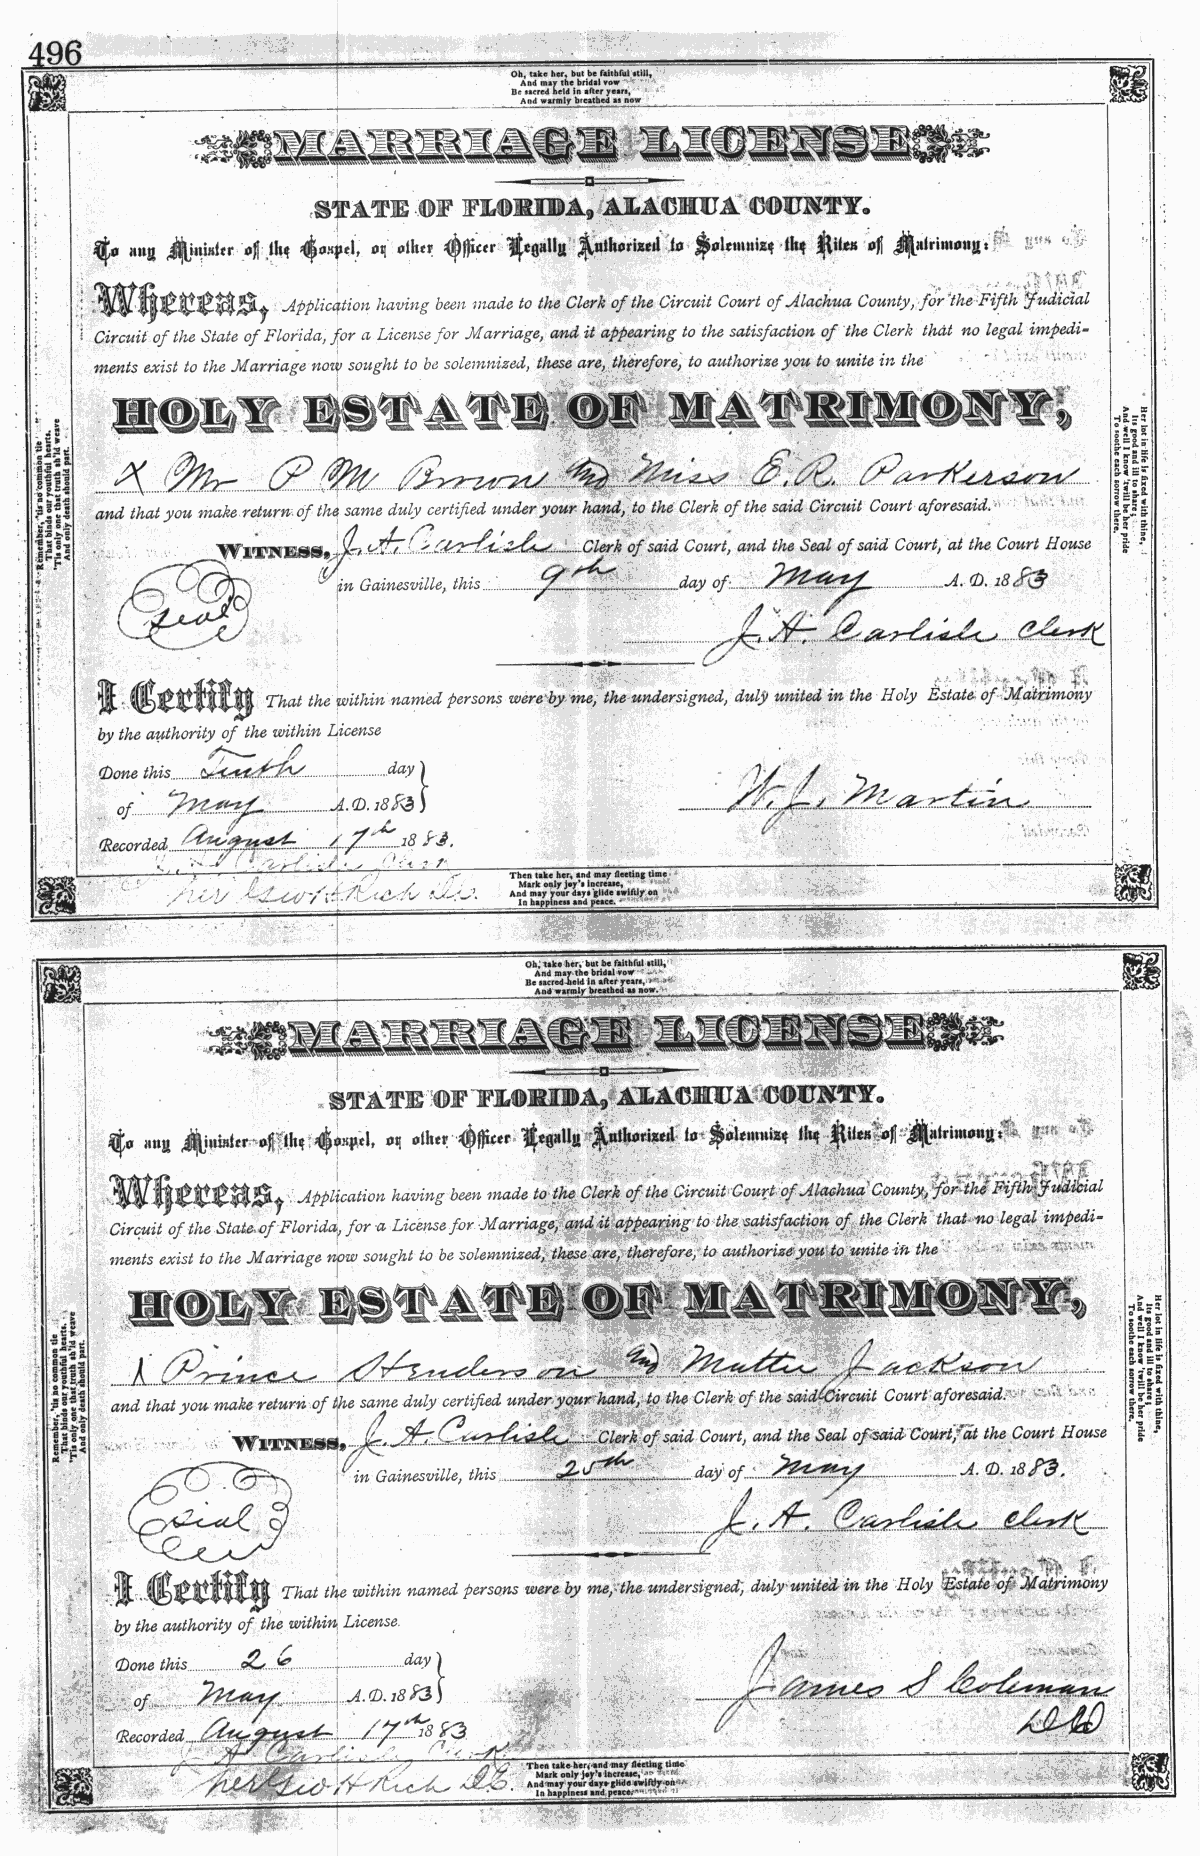 496
Oh, take her, but be faithful still,
And may the bridal vow
Be sacred held in after years,
And warmly breathed as now
MARRIAGE LICENSE
STATE OF FLORIDA, ALACHUA COUNTY.
To any Minister of the Gospel, or other Officer Legally Authorized to Solemnize the Rites of Matrimony:
Whereas, Application having been made to the Clerk of the Circuit Court of Alachua County, for the Fifth Judicial
Circuit of the State of Florida, for a License for Marriage, and it appearing to the satisfaction of the Clerk that no legal impedi-
ments exist to the Marriage now sought to be solemnized, these are, therefore, to authorize you to unite in the
HOLY ESTATE OF MATRIMONY,
X Mr P M Brown and Miss E. R. Parkerson
and that you make return of the same duly certified under your hand, to the Clerk of the said Circuit Court aforesaid.
WITNESS, J. A. Carlisle Clerk of said Court, and the Seal of said Court, at the Court House
in Gainesville, this 9th day of May A. D. 1883
seal
J. A. Carlisle Clerk
I Certify That the within named persons were by me, the undersigned, duly united in the Holy Estate of Matrimony
by the authority of the within License
Done this Tenth day
of May A. D. 1883
W. J. Martin
Recorded August 17th 1883.
J. A. Carlisle Clerk
Per Geo H Rich D.C.
Remember, 'tis no common tie
That binds our youthful hearts.
'Tis only one that truth sh'ld weave
And only death should part.
Her lot in life is fixed with thine,
Its good and ill to share;
And well I know 'twill be her pride
To soothe each sorrow there.
Then take her, and may fleeting time
Mark only joy's increase,
And may your days glide swiftly on
In happiness and peace.
Oh, take her, but be faithful still,
And may the bridal vow
Be sacred held in after years,
And warmly breathed as now.
MARRIAGE LICENSE
STATE OF FLORIDA, ALACHUA COUNTY.
To any Minister of the Gospel, or other Officer Legally Authorized to Solemnize the Rites of Matrimony:
Whereas, Application having been made to the Clerk of the Circuit Court of Alachua County, for the Fifth Judicial
Circuit of the State of Florida, for a License for Marriage, and it appearing to the satisfaction of the Clerk that no legal impedi-
ments exist to the Marriage now sought to be solemnized, these are, therefore, to authorize you to unite in the
HOLY ESTATE OF MATRIMONY,
X Prince Henderson and Mattie Jackson
and that you make return of the same duly certified under your hand, to the Clerk of the said Circuit Court aforesaid.
WITNESS, J. A. Carlisle Clerk of said Court, and the Seal of said Court, at the Court House
in Gainesville, this 25th day of May A. D. 1883.
seal
J. A. Carlisle Clerk
I Certify That the within named persons were by me, the undersigned, duly united in the Holy Estate of Matrimony
by the authority of the within License.
Done this 26 day
of May A. D. 1883
James S Coleman
Recorded August 17th 1883
J A Carlisle, Clerk
Per Geo H Rich D.C.
Remember, 'tis no common tie
That binds our youthful hearts.
'Tis only one that truth sh'ld weave
And only death should part.
Her lot in life is fixed with thine,
Its good and ill to share;
And well I know 'twill be her pride
To soothe each sorrow there.
Then take her, and may fleeting time
Mark only joy's increase,
And may your days glide swiftly on
In happiness and peace.